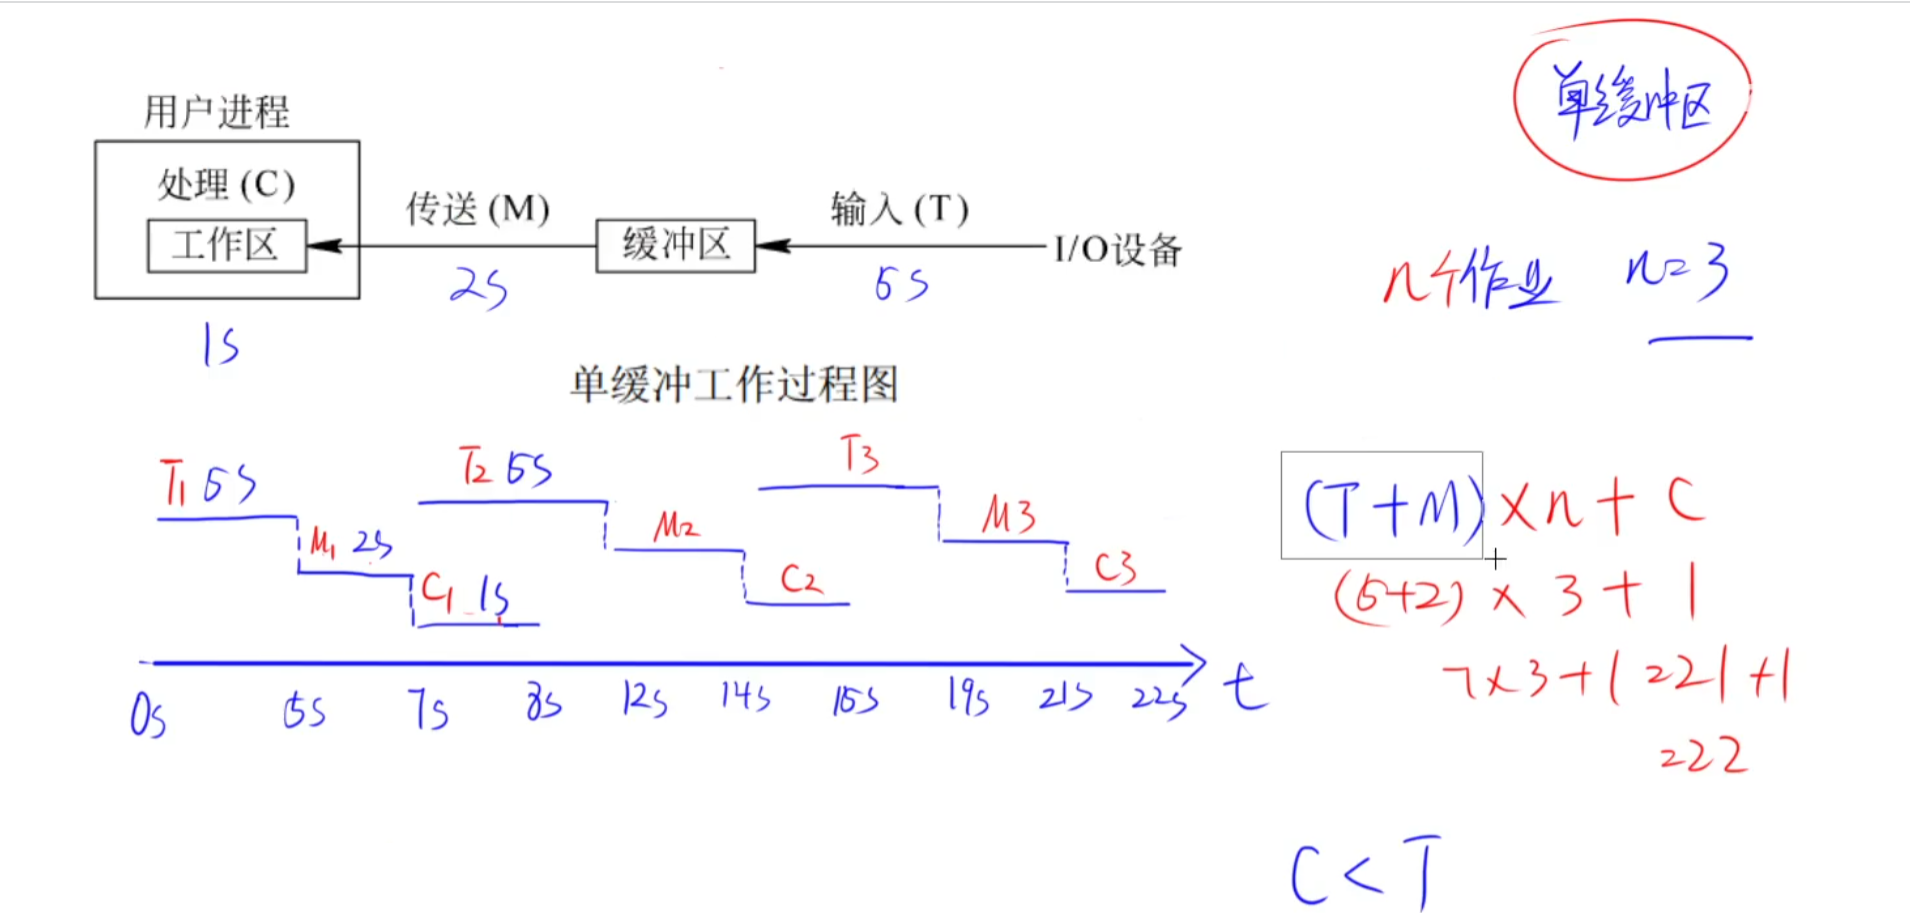 单缓冲区
用户进程
处理 (C)
工作区
传送 (M)
缓冲区
输入 (T)
I/O设备
1S
2S
5S
n个作业 n=3
单缓冲工作过程图
T1 5S
M1 2S
C1 1S
T2 5S
M2
C2
T3
M3
C3
0s 5s 7s 8s 12s 14s 15s 19s 21s 22s t
(T+M)×n+C
(5+2)×3+1
7×3+1=21+1
=22
C<T